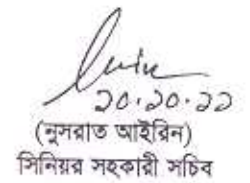 ১০.১০.১১
(নুসরাত আইরিন)
সিনিয়র সহকারী সচিব